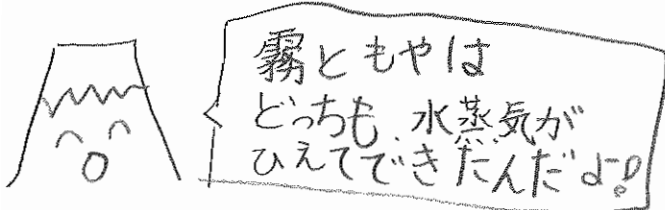 霧ともやは
どっちも、水蒸気が
ひえてできたんだよ!